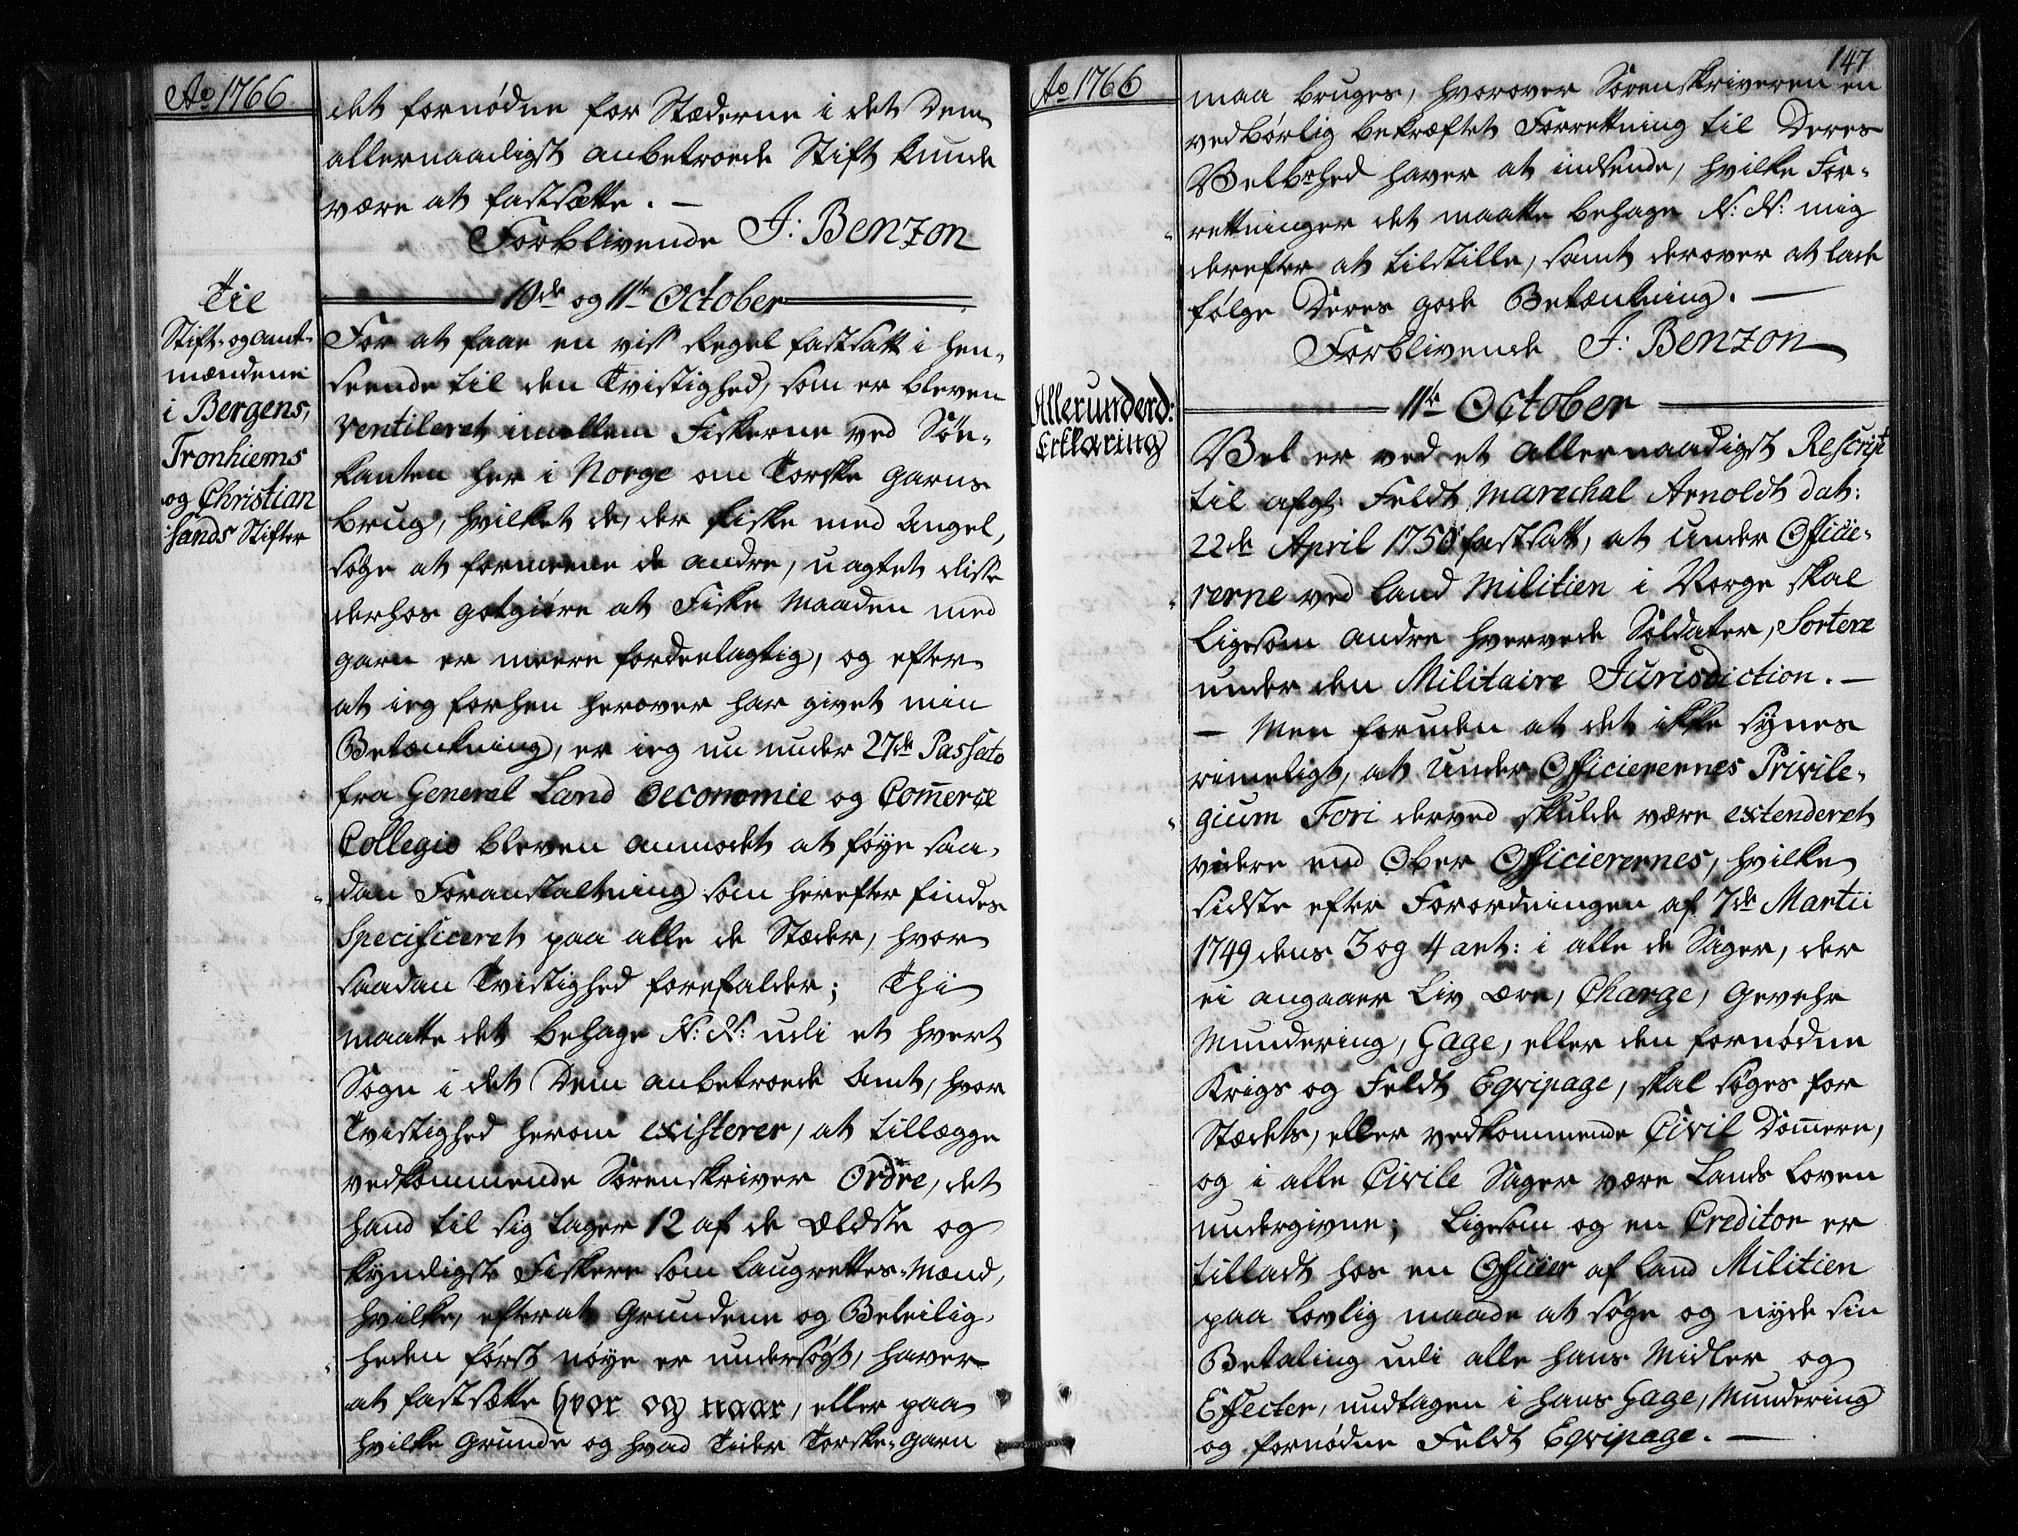 Ao 1766.
det fornødne for Stæderne i det Dem
allernaadigst anbetroede Stift kunde
være at fastsætte. —
Forblivende J: Benzon
10de og 11te October
Til
Stift- og Amt-
mændene
i Bergens,
Tronhiems
og Christian
sands Stifter
For at faae en viss Regel fastsatt i hen-
seende til den Tvistighed, som er bleven
ventileret imellem Fiskerne ved Søe-
kanten her i Norge om Torske Garns
brug, hvilket de, der fiske med Angel,
søge at formeene de andre, uagtet disse
derhos gotgiøre at Fiske Maaden med
garn er meere fordeelagtig, og efter
at ieg forhen herover har givet min
Betænkning, er ieg nu under 27de Passato
fra General Land Oeconomie og Com̄erce
Collegio bleven anmodet at føye saa-
dan Foranstaltning som herefter findes
Specificeret paa alle de Stæder, hvor
saadan Tvistighed forefalder; Thi
maatte det behage N: N: udi et hvert
Sogn i det Dem anbetroede Amt, hvor
Tvistighed herom existerer, at tillægge
vedkommende Sorenskriver Ordre, det
hand til sig tager 12 af de ældste og
kyndigste Fiskere som Laugrettes-Mænd,
hvilke, efterat Grundene og Beleilig-
heden først nøye er undersøgt, haver
at fastsætte hvor og naar, eller paa
hvilke Grunde og hvad Tider Torske-Garn
147
Ao 1766
maa bruges, hvorover Sorenskriveren en
vedbørlig bekræftet Forrettning til Deres
Velbrhed haver at indsende, hvilke For-
rettninger det maatte behage N: N: mig
derefter at tilstille, samt derover at lade
følge Deres gode Betænkning. —
Forblivende J: Benzon
11te October
Allerunderd:
Erklæring
Vel er ved et allernaadigst Rescript
til afg: Feldt Marechal Arnoldt dat:
22de April 1750 fastsatt, at Under Officie-
rerne ved Land Militien i Norge skal
ligesom andre hvervede Soldater, Sortere
under den Militaire Jurisdiction. —
— Men foruden at det ikke synes
rimeligt, at Under Officierernes Privile-
gium Fori derved skulde være extenderet
videre end Ober Officierernes, hvilke
sidste efter Forordningen af 7de Martii
1749 dens 3 og 4 art: i alle de Sager, der
ei angaaer Liv ære, Charge, Gevehr
Mundering, Gage, eller den fornødne
Krigs og Feldt Eqvipage, skal søges for
Stædets, eller vedkommende Civil Dom̄ere,
og i alle Civile Sager være Lands Loven
undergivne; Ligesom og en Creditor er
tilladt hos en Officier af Land Militien
paa lovlig maade at søge og nyde sin
Betaling udi alle hans Midler og
Effecter, undtagen i hans Gage, Mundering
og fornødne Feldt Eqvipage. —